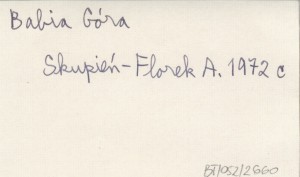 Babia Góra
Skupień-Florek A. 1972 c
BT/052/2660